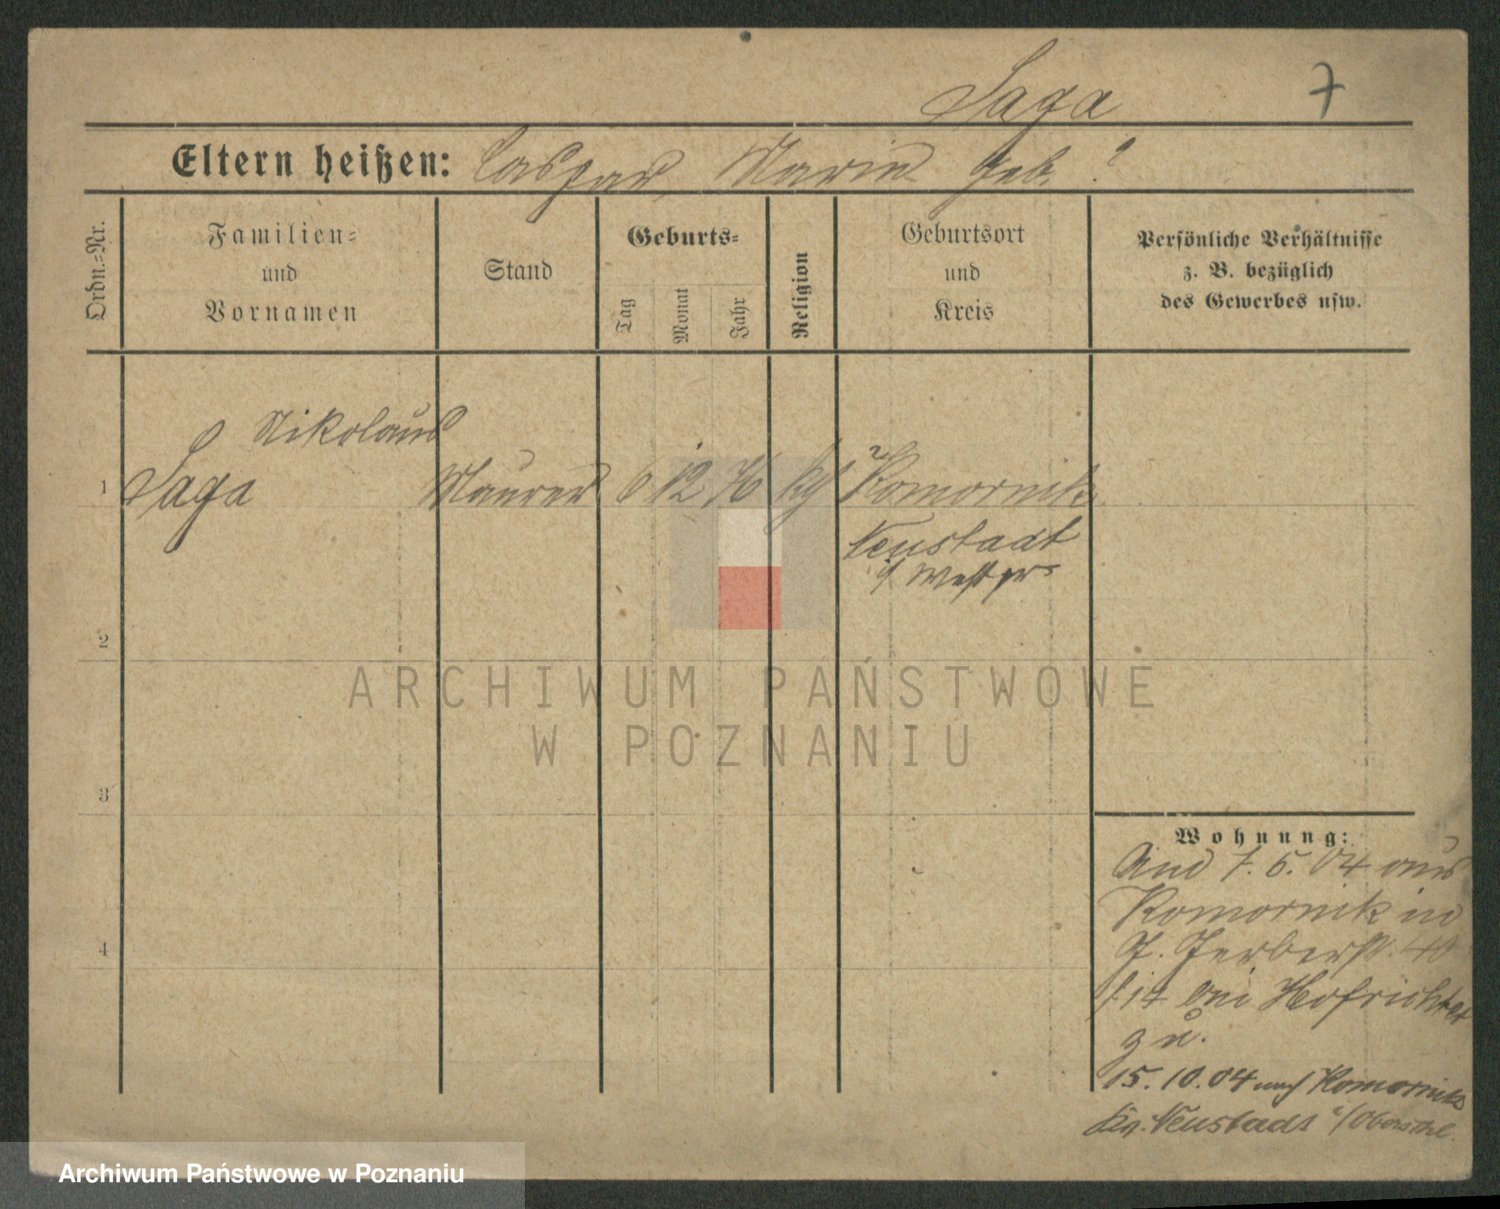 Saga
7
Eltern heißen: Caspar, Marie geb. ?
Ordn.-Nr.
Familien-
und
Vornamen
Stand
Geburts-
Tag
Monat
Jahr
Religion
Geburtsort
und
Kreis
Persönliche Verhältnisse
z. B. bezüglich
des Gewerbes usw.
Nikolaus
1 Saga Maurer 6 12 76 kth Komornik
Neustadt
Westpr
2
3
4
Wohnung:
7. 5. 04 aus
Komornik in
J. Gerberstr. 40
bei Hofrichter
zu.
15. 10. 04 nach Komornik
Kr. Neustadt
ARCHIWUM PAŃSTWOWE
W POZNANIU
Archiwum Państwowe w Poznaniu